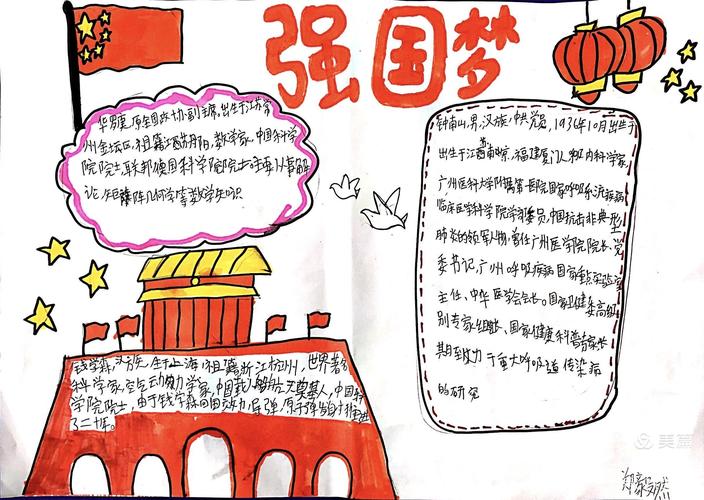 强国梦
华罗庚,原全国政协副主席。出生于江苏常
州金坛区,祖籍江苏丹阳,数学家,中国科学
院院士,联邦德国科学院院士 主要从事解
论,矩阵几何学等数学知识
钟南山,男,汉族,中共党员,1936年10月出生于
出生于江苏南京,福建厦门人 呼吸内科学家,
广州医科大学附属第一医院国家呼吸系统疾病
临床医学科学院学术委员,中国抗击非典型
肺炎的领军人物,曾任广州医学院院长、党
委书记,广州呼吸疾病国家重点实验室
主任、中华医学会会长。国家卫健委高级
别专家组组长、国家健康科普专家
期致力于重大呼吸道传染病
的研究
钱学森,汉族,生于上海,祖籍浙江杭州,世界著名
科学家,空气动力学家,中国载人航天奠基人,中国科
学院院士,由于钱学森回国效力,导弹,原子弹发射推进
了二十年。
美篇